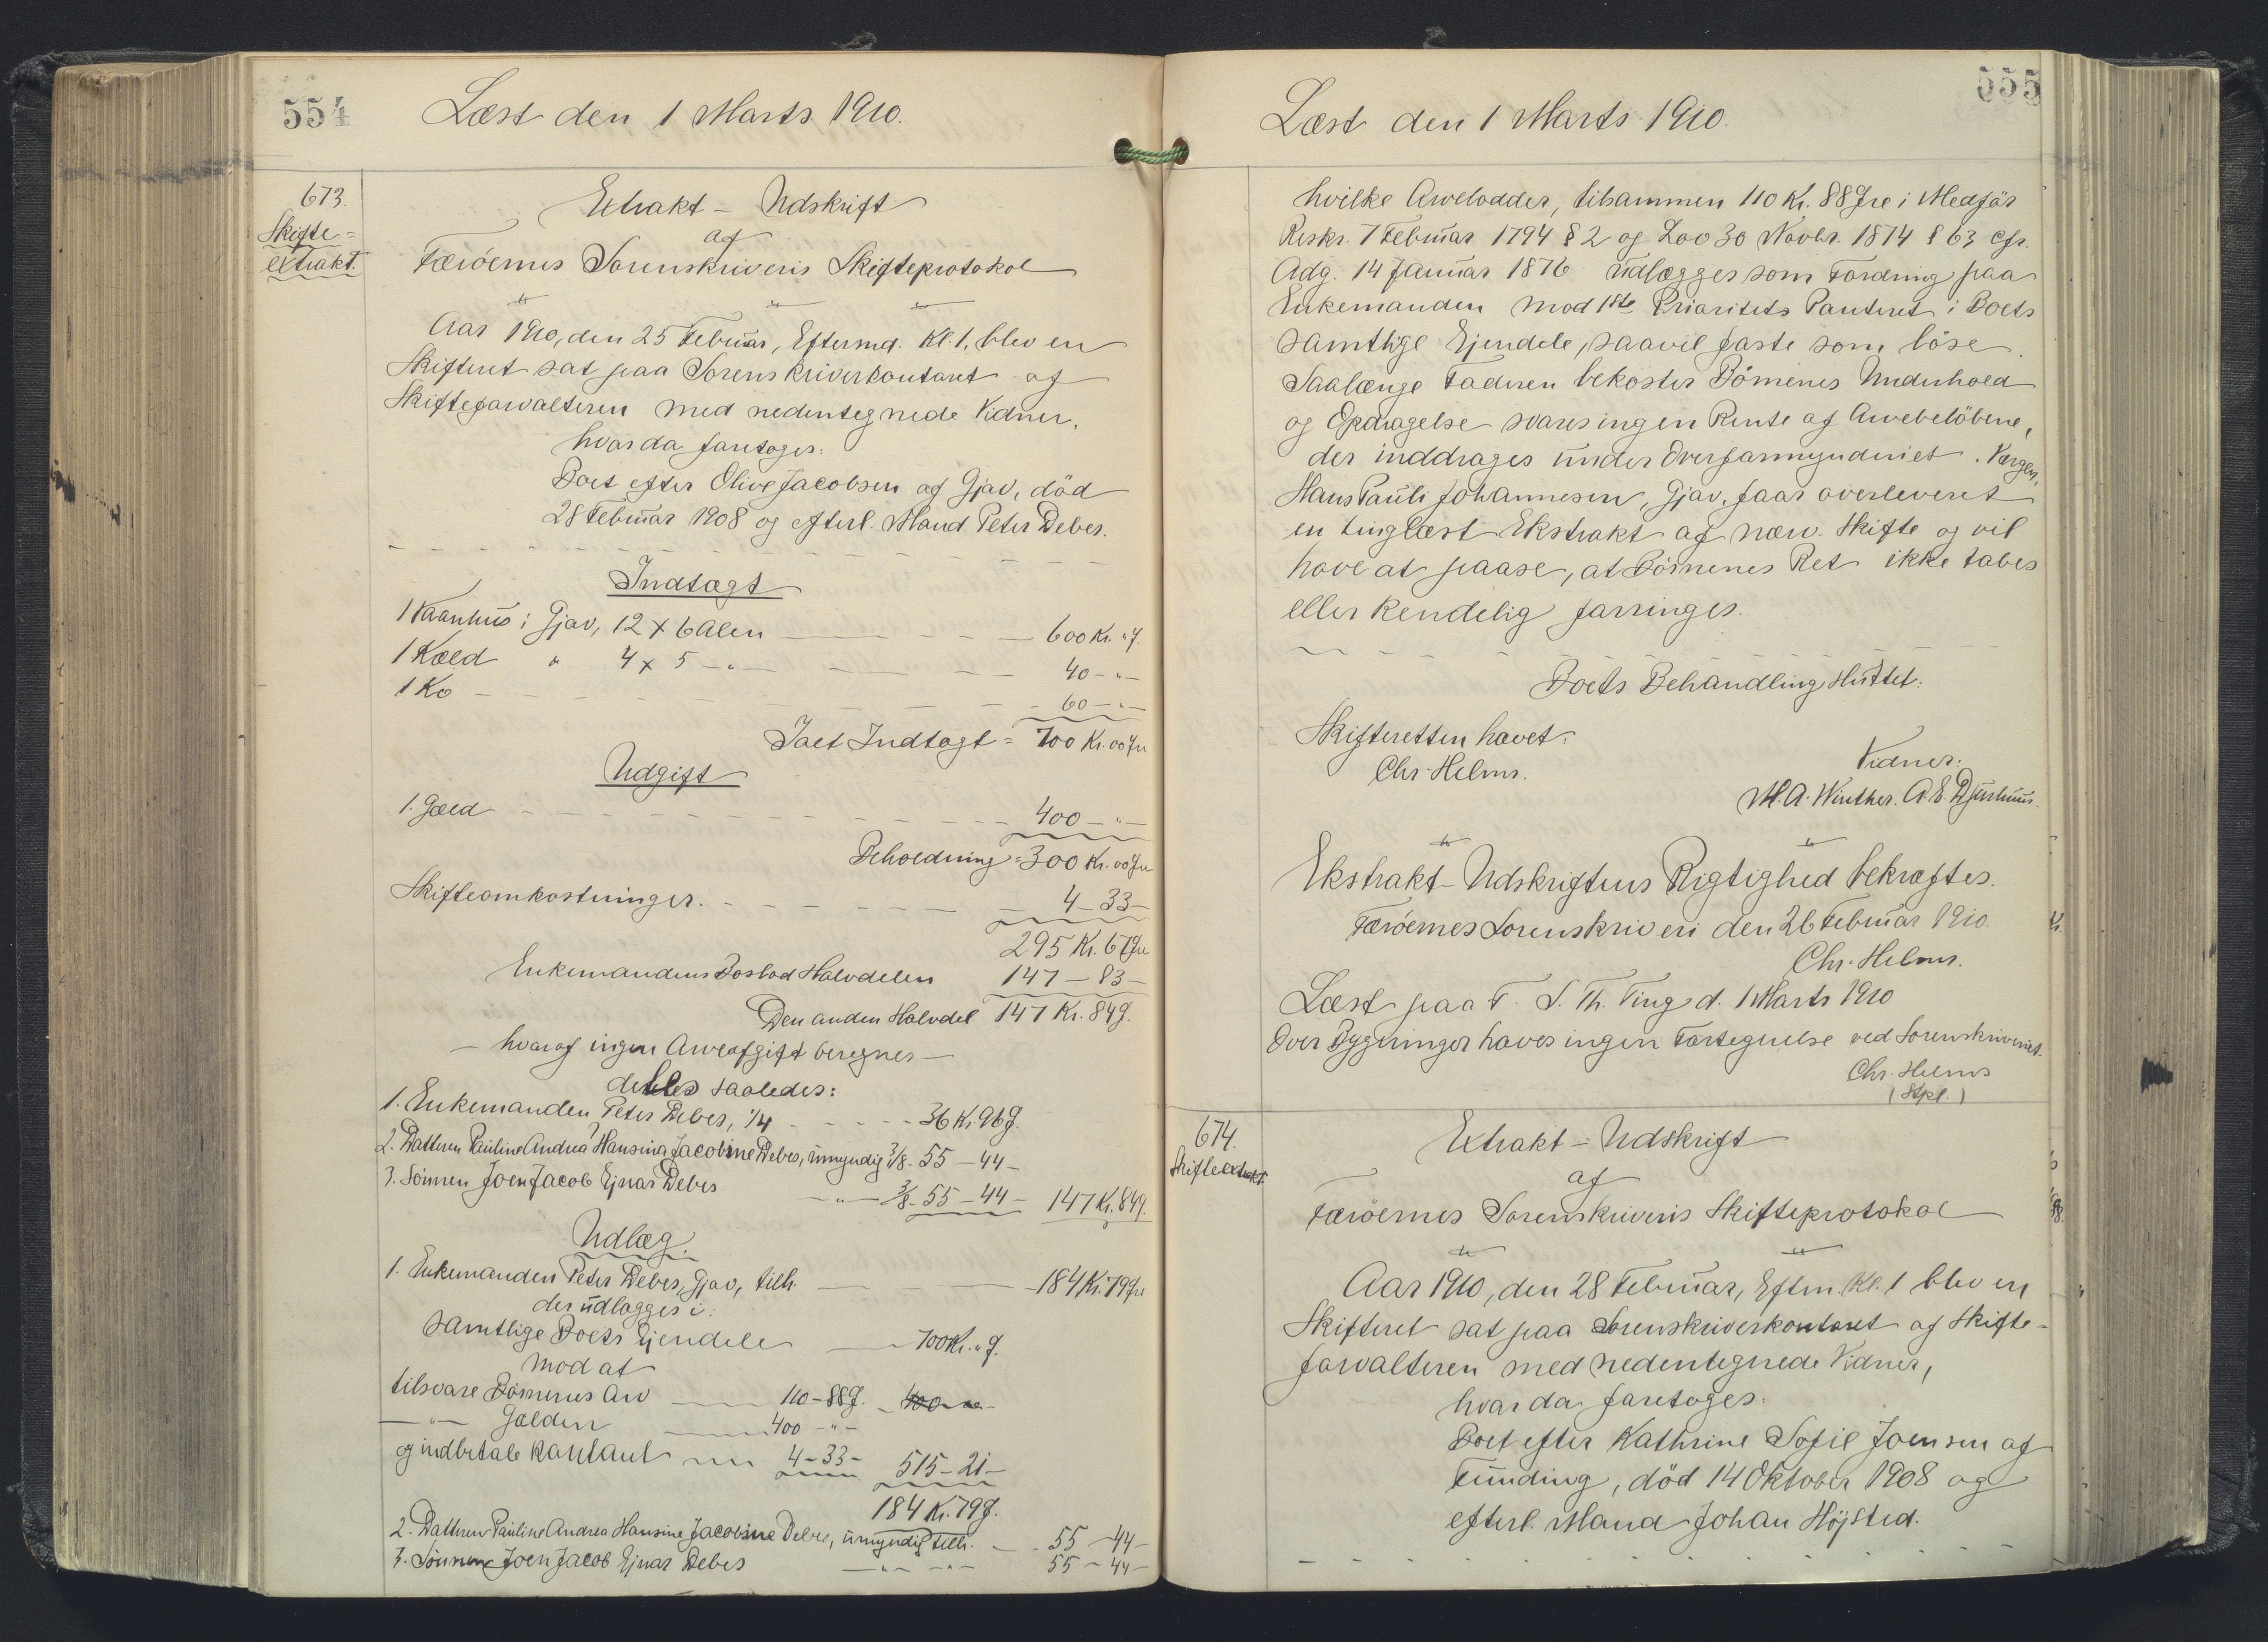 554
Læst den 1 Marts 1910.
673.
Skifte=
extrakt.
Extrakt - Udskrift
af
Færöernes Sorenskriveris Skifteprotokol
Aar 1910, den 25 Februar, Eftermd. Kl. 1, blev en
Skifteret sat paa Sorenskriverkontoret af
Skifteforvalteren med nedentegnede Vidner,
hvorda foretoges:
Boet efter Olive Jacobsen af Gjov, död
28 Februar 1908 og efterl. Mand Peter Debes.
Indtægt
1 Vaanhus i Gjov, 12 x 6 Alen 600 Kr. " Ø.
1 Kæld " 4 x 5 - " - 40 - " -
1 Ko 60 - " -
Ialt Indtægt = 700 Kr. 00 Øre
Udgift
1. Gæld 400 - " -
Beholdning = 300 Kr. 00 Øre
Skifteomkostninger. 4 - 33 -
295 Kr. 67 Øre
Enkemandens Boslod Halvdelen 147 - 83 -
Den anden Halvdel 147 Kr. 84 Ø.
- hvoraf ingen Arveafgift beregnes -
deles saaledes:
1. Enkemanden Peter Debes, 1/4 36 Kr. 96 Ø.
2. Datteren Pauline Andrea Hansina Jacobine Debes, umyndig 3/8 - 55 - 44 -
3. Sönnen Joen Jacob Ejnar Debes - " - 3/8 - 55 - 44 - 147 Kr. 84 Ø.
Udlæg.
1. Enkemanden Peter Debes, Gjov, tilk. 184 Kr. 79 Øre
der udlægges i:
samtlige Boets Ejendele 700 Kr. " Ø.
mod at
tilsvare Börnenes Arv 110 - 88 Ø.
- " - Gælden 400 - " -
og indbetale kontant 4 - 33 - 515 - 21 -
184 Kr. 79 Ø.
2. Datteren Pauline Andrea Hansine Jacobine Debes, umyndig tilk. 55 - 44 -
3. Sönnen Joen Jacob Ejnar Debes - " - - " - 55 - 44 -
555
Læst den 1 Marts 1910.
hvilke Arvelodder, tilsammen 110 Kr. 88 Øre i Medför
Reskr. 7 Februar 1794 § 2 og Lov 30 Novbr. 1874 § 63 cfr.
Adg. 14 Januar 1876 udlægges som Fordring paa
Enkemanden mod 1ste Prioritets Panteret i Boets
samtlige Ejendele, saavel faste som löse.
Saalænge Faderen bekoster Börnenes Underhold
og Opdragelse svares ingen Rente af Arvebelöbene,
der inddrages under Overformynderiet. Værgen,
Hans Pauli Johannesen, Gjov, faar overleveret
en tinglæst Ekstrakt af nærv. Skifte og vil
have at paase, at Börnenes Ret ikke tabes
eller kendelig forringes.
Boets Behandling sluttet:
Skifteretten hævet:
Chr. Helms.
Vidner:
M. A. Winther. A. E. Djurhuus.
Ekstrakt-Udskriftens Rigtighed bekræftes.
Færöernes Sorenskriveri den 26 Februar 1910.
Chr. Helms.
Læst paa F. S. Th. Ting d. 1 Marts 1910
Over Bygninger haves ingen Fortegnelse ved Sorenskriveriet.
Chr. Helms
(Stpl.)
674.
Skifteextrakt.
Extrakt - Udskrift
af
Færöernes Sorenskriveris Skifteprotokol
Aar 1910, den 28 Februar, Eftm. Kl. 1 blev en
Skifteret sat paa Sorenskriverkontoret af Skifte-
forvalteren med nedentegnede Vidner,
hvor da foretoges:
Boet efter Kathrine Sofie Joensen af
Funding, död 14 Oktober 1908 og
efterl. Mand Johan Höjsted.